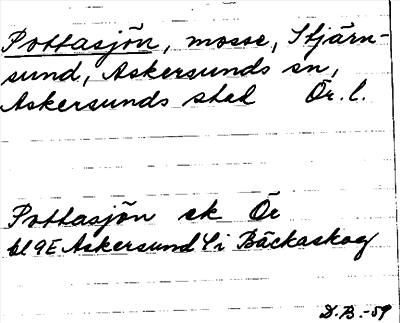 Pottasjön, mosse, Stjärn-
sund, Askersunds sn,
Askersunds stad Ör. l.
Pottasjön ek Ör
bl 9E Askersund i Bäckaskog
D.B.-59